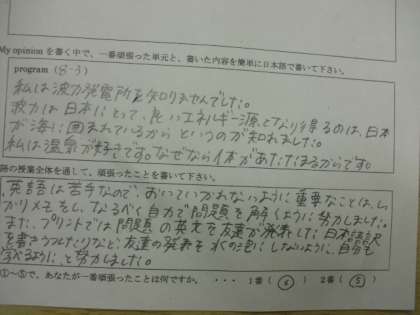 My opinion を書く中で、一番頑張った単元と、書いた内容を簡単に日本語で書いて下さい。
program (8-3)
私は波力発電所を知りませんでした。
波力は日本にとって、良いエネルギー源となり得るのは、日本
が海に囲まれているからというのが知れました。
私は温泉が好きです。なぜなら体があたたまるからです。
の授業全体を通して、頑張ったことを書いて下さい。
英語は苦手なので、おいていかれないように重要なことは、しっ
かりメモをし、なるべく自力で問題を解くように努力しました。
また、プリントでは問題の英文を友達が発表した日本語訳
を書きうつしたりなど、友達の発表を水の泡にしないように、自分も
学べるように、と努力しました。
①~⑤で、あなたが一番頑張ったことは何ですか。 ・・・ 1番 ( ) 2番 ( ⑤ )